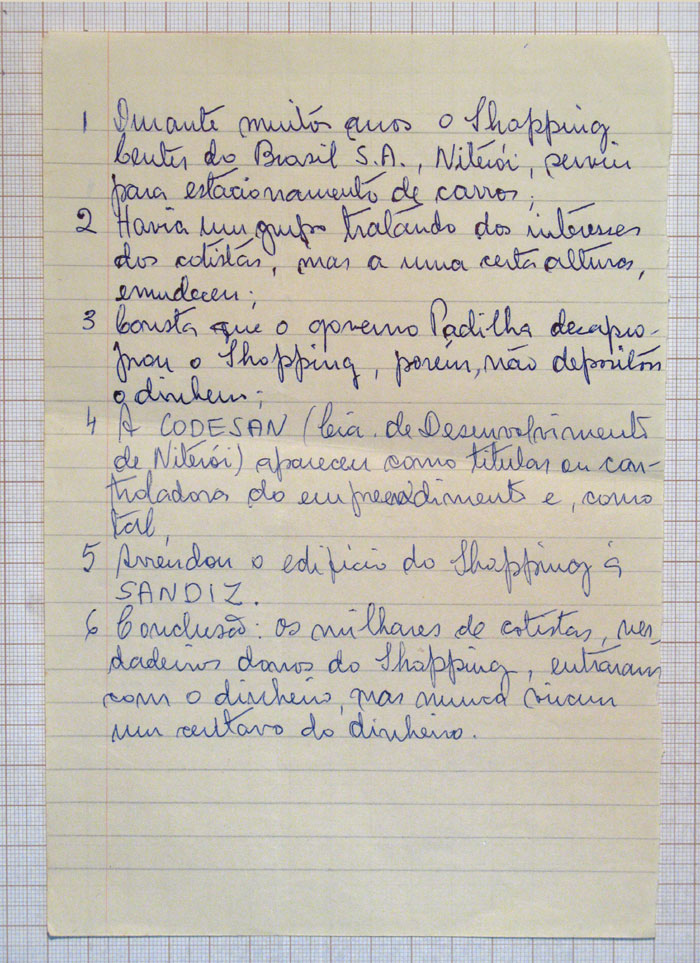 1 Durante muitos anos o Shopping
Center do Brasil S.A., Niterói, serviu
para estacionamento de carros;
2 Havia um grupo tratando dos interesses
dos cotistas, mas a uma certa alturas,
emudeceu;
3 Consta que o governo Padilha desapro-
priou o Shopping, porém, não depositou
o dinheiro;
4 A CODESAN (Cia. de Desenvolvimento
de Niterói) apareceu como titular ou con-
troladora do empreendimento e, como
tal,
5 Arrendou o edifício do Shopping à
SANDIZ.
6 Conclusão: os milhares de cotistas, ver-
dadeiros donos do Shopping, entraram
com o dinheiro, mas nunca viram
um centavo do dinheiro.